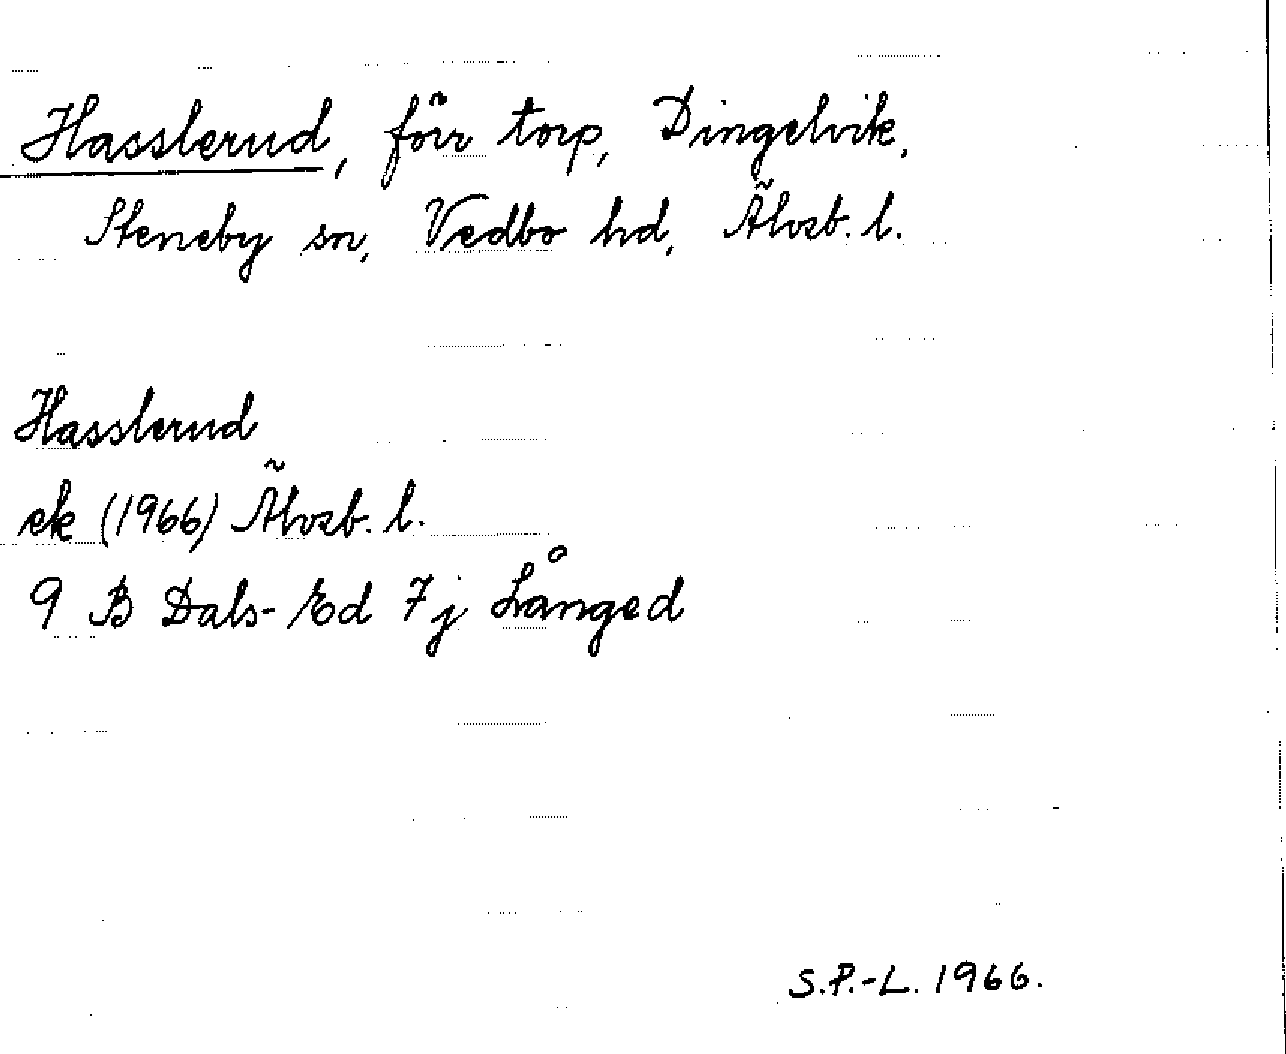 Hasslerud, förr torp, Dingelvik,
Steneby sn, Vedbo hd, Älvsb. l.
Hasslerud
ek (1966) Älvsb. l.
9 B Dals-Ed 7j Långed
S.P.-L. 1966.